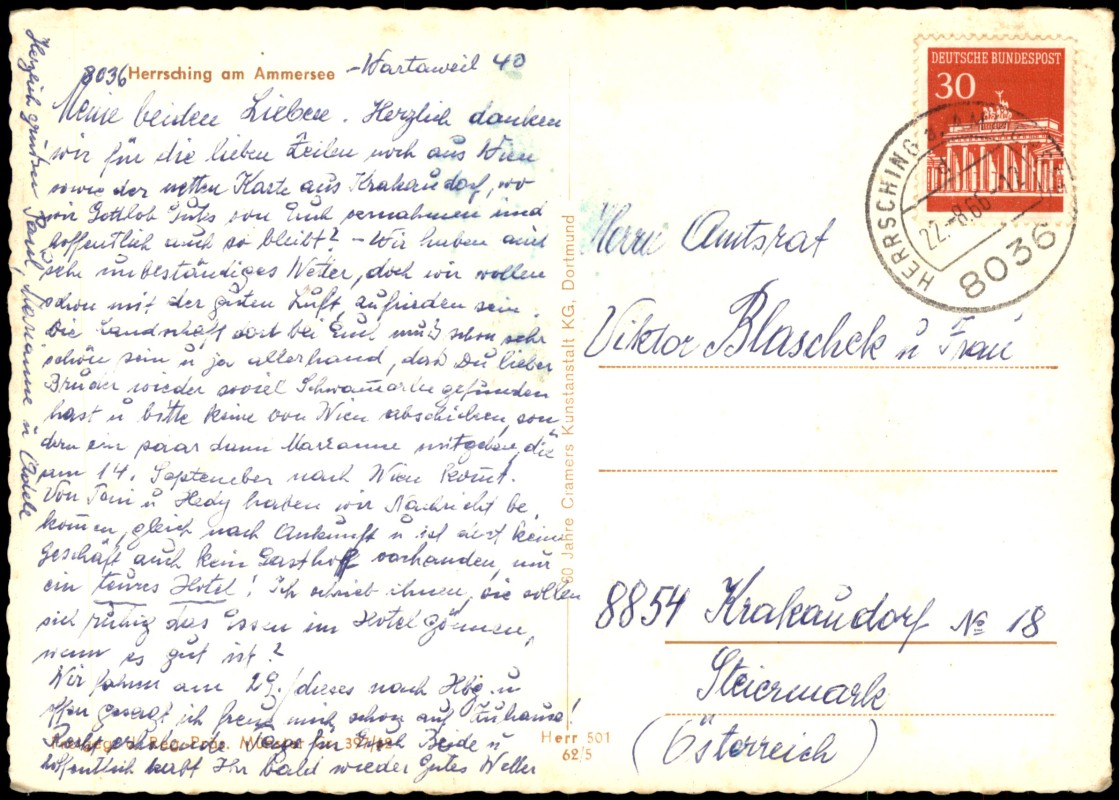 8036 Herrsching am Ammersee - Wartaweil 40
Meine beiden Lieben. Herzlich danken
wir für die lieben Zeilen noch aus Wien
sowie der netten Karte aus Krakaudorf, wo
wir Gottlob Gutes von Euch vernahmen und
hoffentlich auch so bleibt? - Wir haben auch
sehr unbeständiges Wetter, doch wir wollen
schon mit der guten Luft zufrieden sein.
Die Landschaft dort bei Euch muß schon sehr
schön sein u ja allerhand, daß Du lieber
Bruder wieder soviel gefunden
hast u bitte keine von Wien abschicken, son
dern ein paar dann Marianne mitgeben, die
am 14. September nach Wien komt.
Von Toni u Hedy haben wir Nachricht be
komen, gleich nach Ankunft u ist dort kein
Geschäft auch kein Gasthof vorhanden, nur
ein teures Hotel! Ich schrieb ihnen, sie sollen
sich ruhig das Essen im Hotel gönnen,
wenn es gut ist?
Wir fahren am 29./dieses nach Hbg. u
offen gesagt ich freue mich schon auf Zuhause!
Recht erholsame Tage für Euch Beide u
hoffentlich habt Ihr bald wieder Gutes Wetter
Herzlich grüßen Paul, Marianne u Adele
60 Jahre Cramers Kunstanstalt KG, Dortmund
Herr 501
62/5
DEUTSCHE BUNDESPOST
30
HERRSCHING a. AMMERSEE
22.-8.66-12
8036
Herrn Amtsrat
Viktor Blaschek u Frau
8854 Krakaudorf № 18
Steiermark
(Österreich)